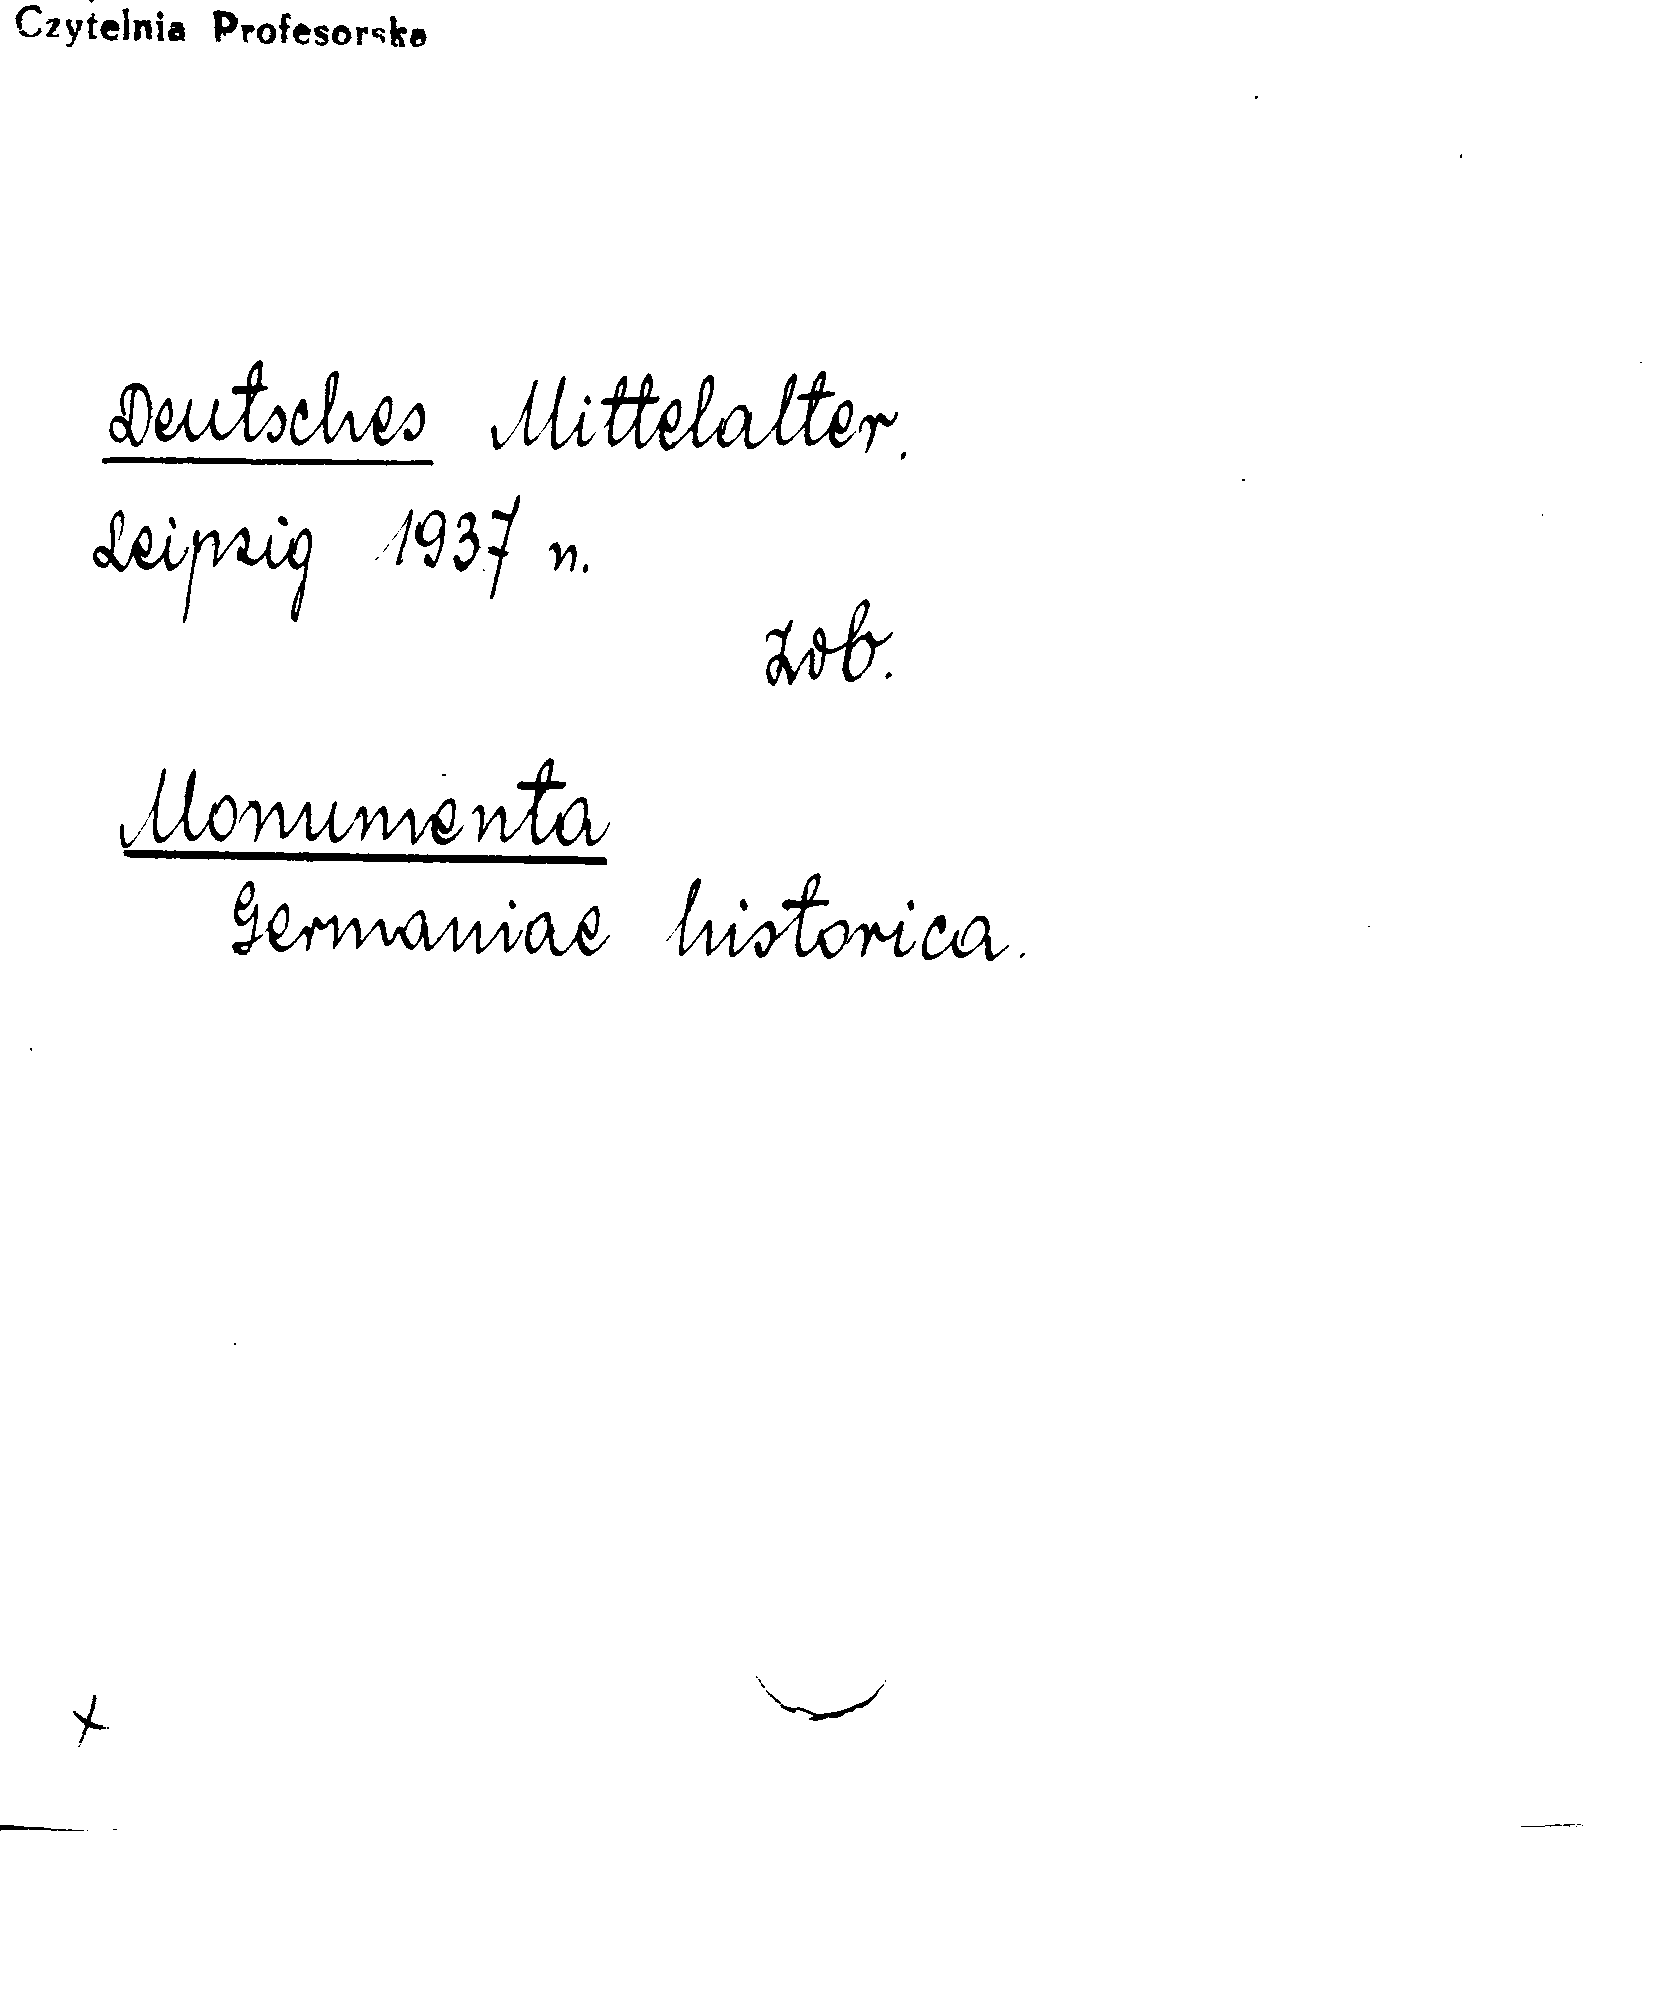 Czytelnia Profesorska
Deutsches Mittelalter.
Leipzig 1937 n.
Zob.
Monumenta
Germaniae historica.
x